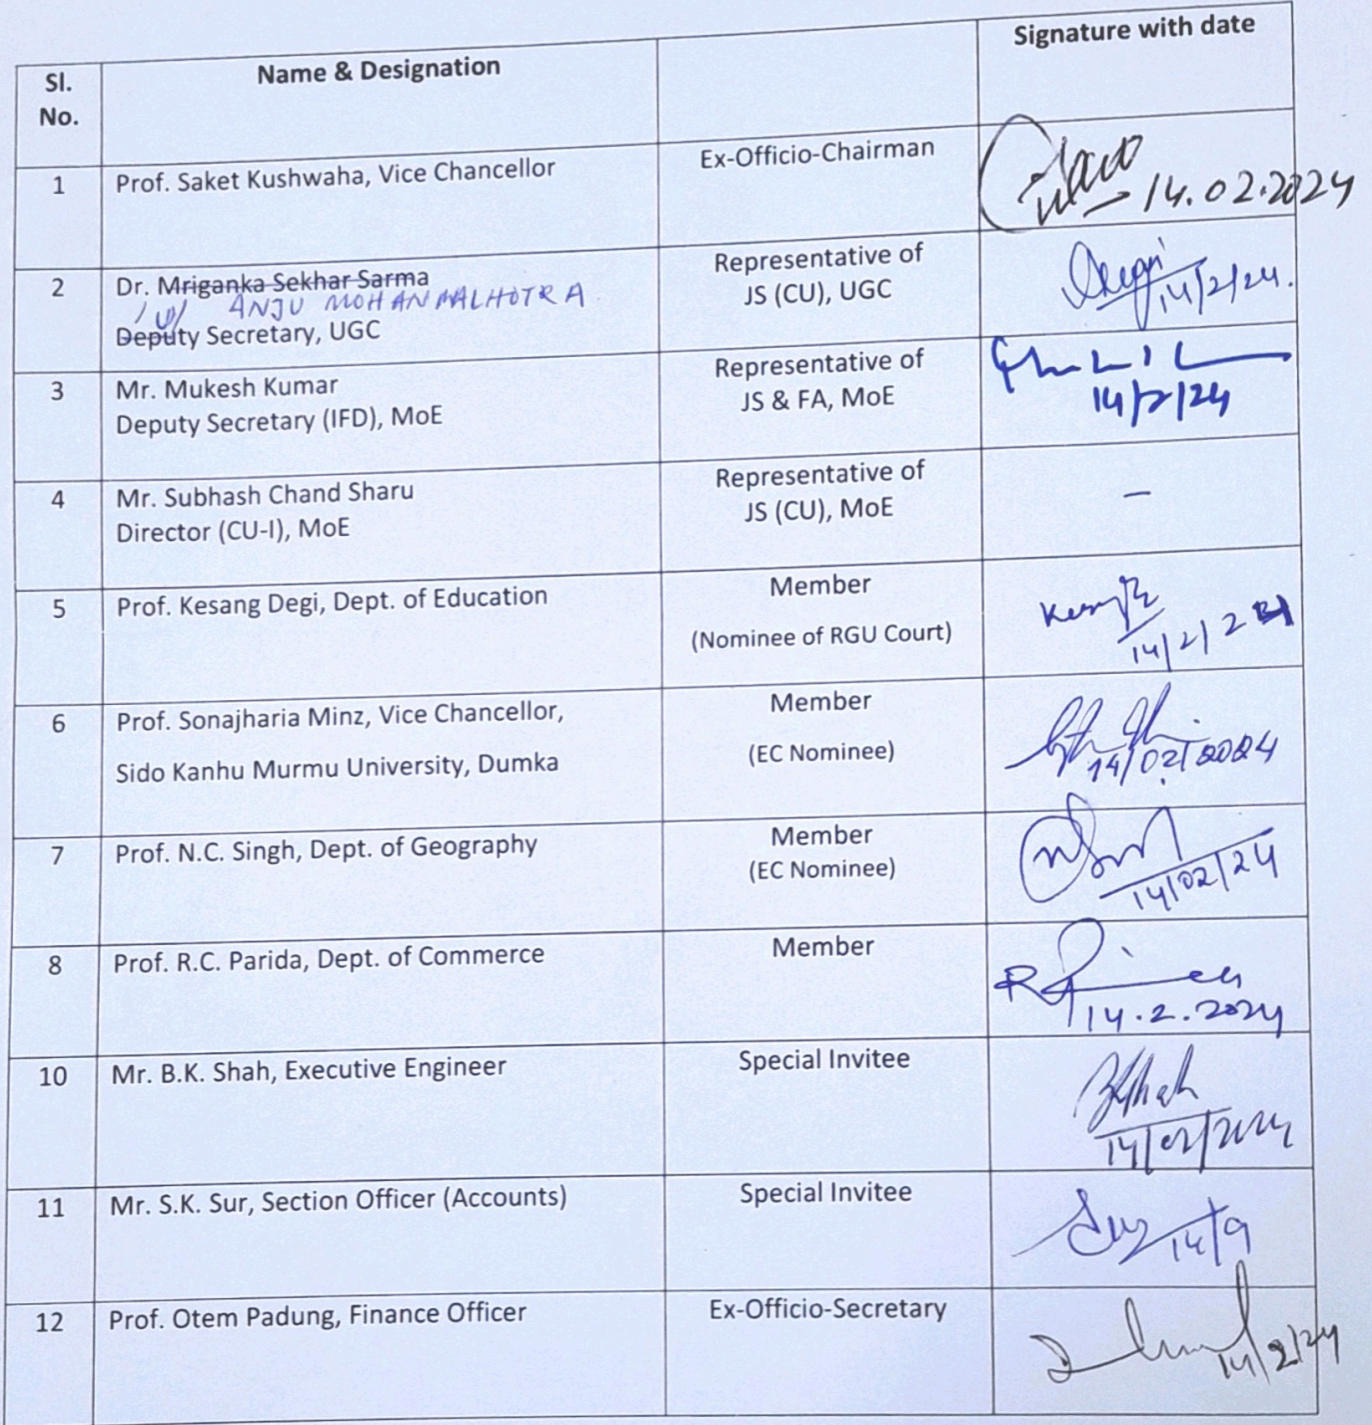 Sl.
No.
Name & Designation
Signature with date
1
Prof. Saket Kushwaha, Vice Chancellor
Ex-Officio-Chairman
14.02.2024
2
Dr. Mriganka Sekhar Sarma
ANJU MOHAN MALHOTRA
Deputy Secretary, UGC
Representative of
JS (CU), UGC
14/2/24.
3
Mr. Mukesh Kumar
Deputy Secretary (IFD), MoE
Representative of
JS & FA, MoE
14/2/24
4
Mr. Subhash Chand Sharu
Director (CU-I), MoE
Representative of
JS (CU), MoE
—
5
Prof. Kesang Degi, Dept. of Education
Member
(Nominee of RGU Court)
14/2/24
6
Prof. Sonajharia Minz, Vice Chancellor,
Sido Kanhu Murmu University, Dumka
Member
(EC Nominee)
14/02/2024
7
Prof. N.C. Singh, Dept. of Geography
Member
(EC Nominee)
14/02/24
8
Prof. R.C. Parida, Dept. of Commerce
Member
14.2.2024
10
Mr. B.K. Shah, Executive Engineer
Special Invitee
14/02/2024
11
Mr. S.K. Sur, Section Officer (Accounts)
Special Invitee
12
Prof. Otem Padung, Finance Officer
Ex-Officio-Secretary
14/2/24